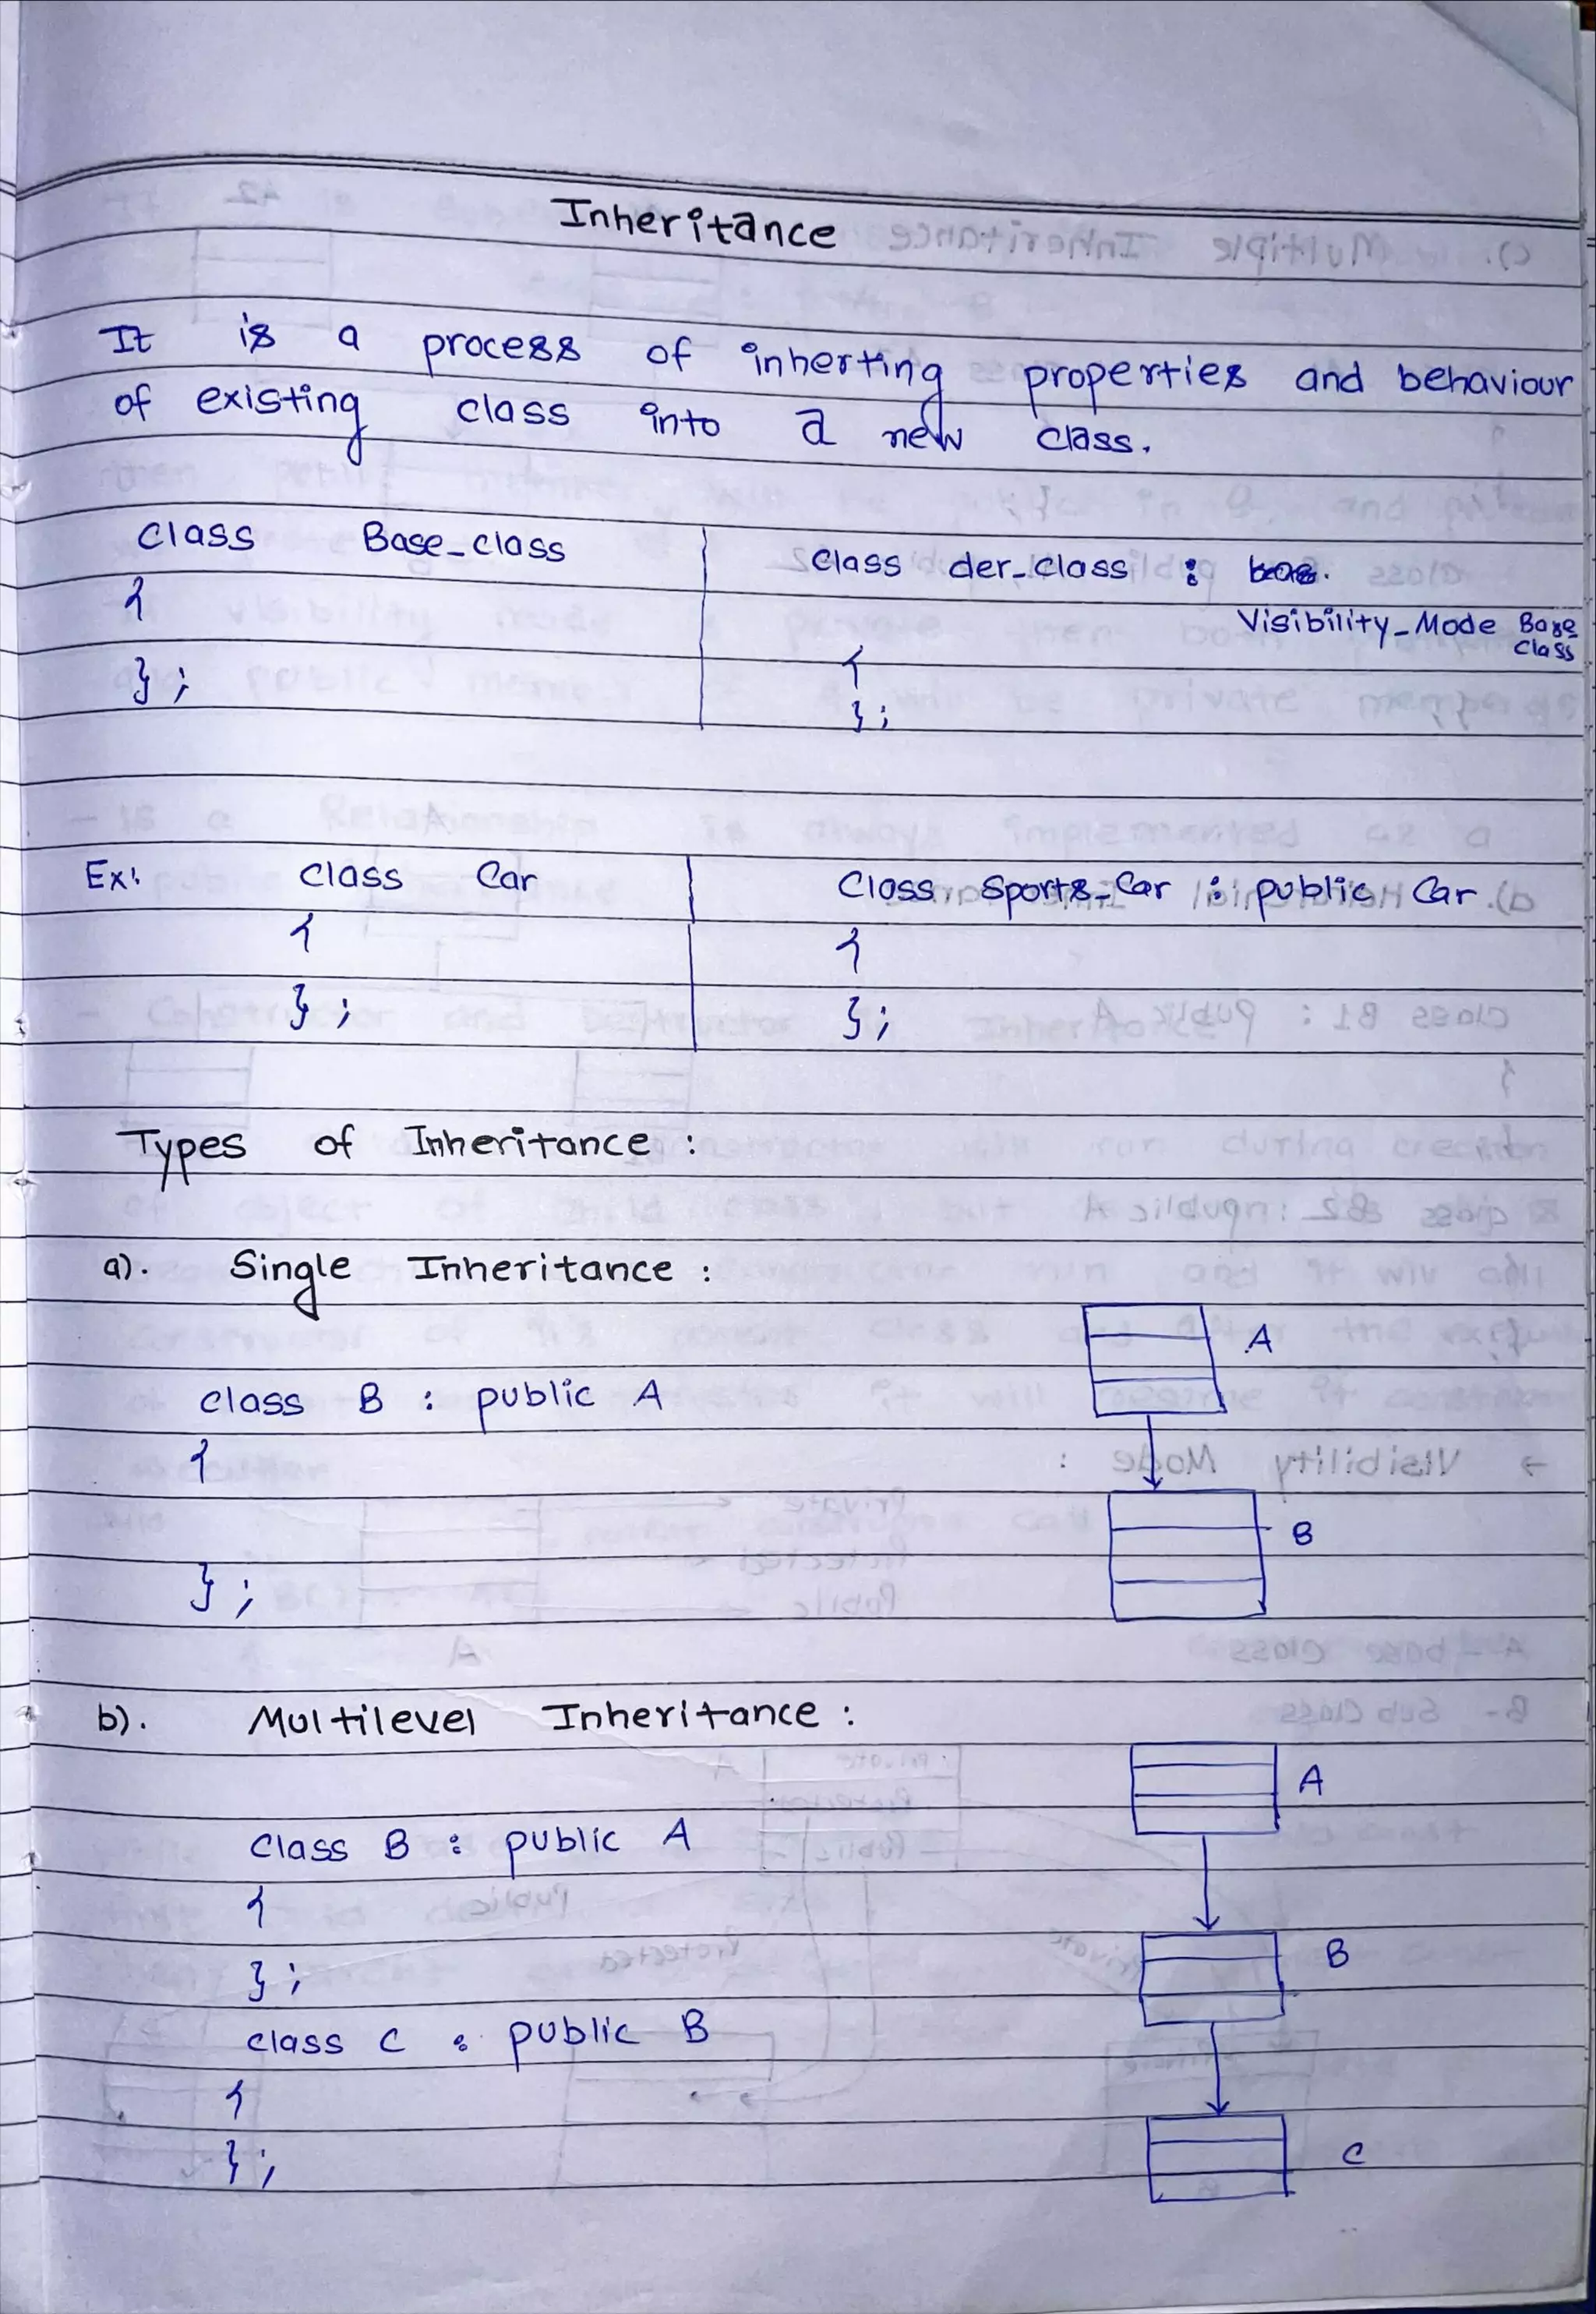 Inheritance
It is a process of inherting properties and behaviour
of existing class into a new class.
class Base_class
{
};
class der_class :
Visibility_Mode Base
class
{
};
Ex: class Car
{
};
Class Sports_Car : public Car
{
};
Types of Inheritance :
a). Single Inheritance :
class B : public A
{
};
A
B
b). Multilevel Inheritance :
class B : public A
{
};
class C : public B
{
};
A
B
C